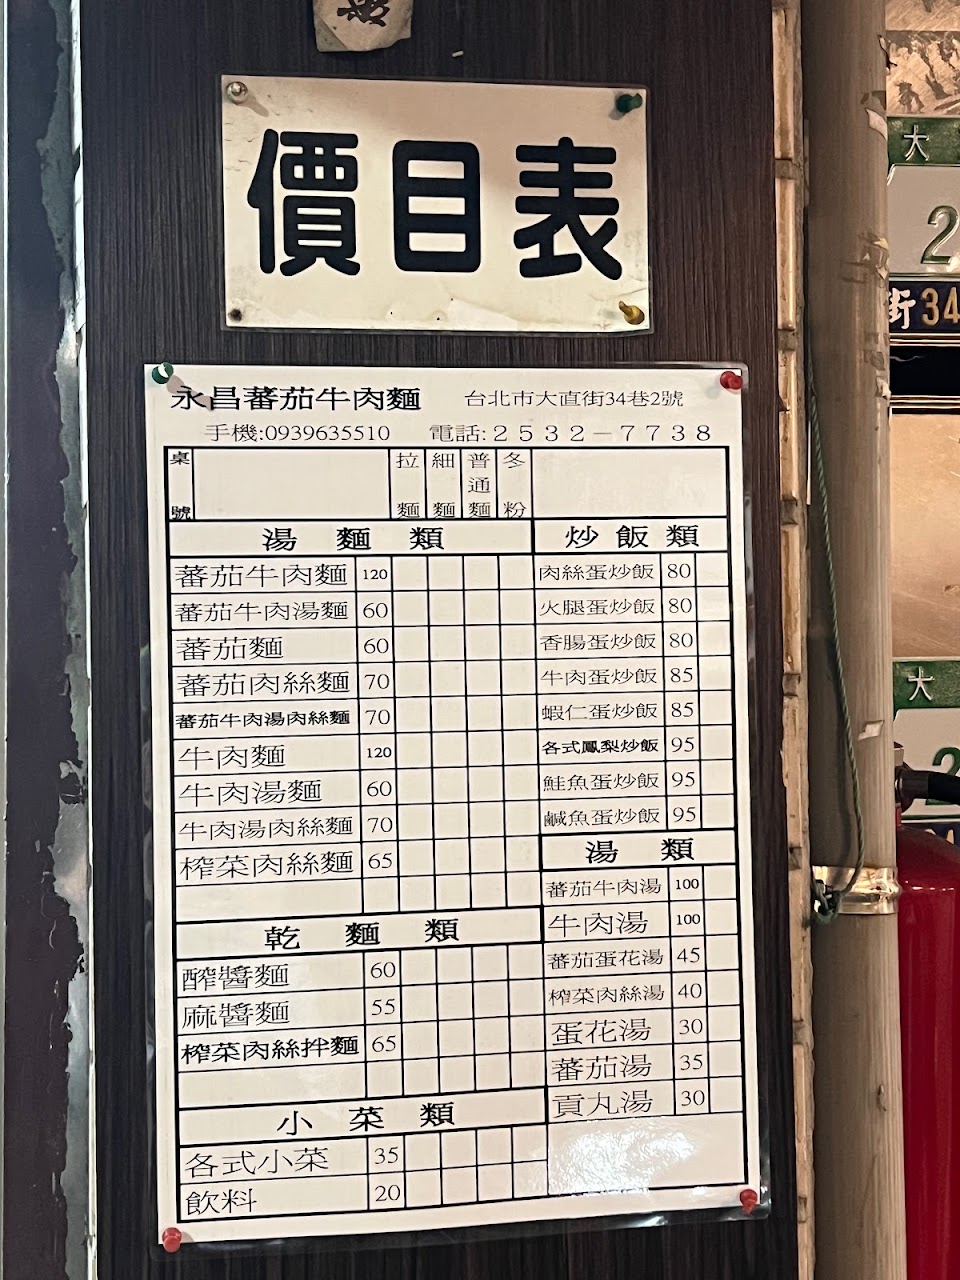 價目表
永昌蕃茄牛肉麵 台北市大直街34巷2號
手機:0939635510 電話:2532-7738
桌號 拉麵 細麵 普通麵 冬粉
湯麵類
蕃茄牛肉麵 120
蕃茄牛肉湯麵 60
蕃茄麵 60
蕃茄肉絲麵 70
蕃茄牛肉湯肉絲麵 70
牛肉麵 120
牛肉湯麵 60
牛肉湯肉絲麵 70
榨菜肉絲麵 65
乾麵類
醡醬麵 60
麻醬麵 55
榨菜肉絲拌麵 65
小菜類
各式小菜 35
飲料 20
炒飯類
肉絲蛋炒飯 80
火腿蛋炒飯 80
香腸蛋炒飯 80
牛肉蛋炒飯 85
蝦仁蛋炒飯 85
各式鳳梨炒飯 95
鮭魚蛋炒飯 95
鹹魚蛋炒飯 95
湯類
蕃茄牛肉湯 100
牛肉湯 100
蕃茄蛋花湯 45
榨菜肉絲湯 40
蛋花湯 30
蕃茄湯 35
貢丸湯 30
大
2
街34
大
2